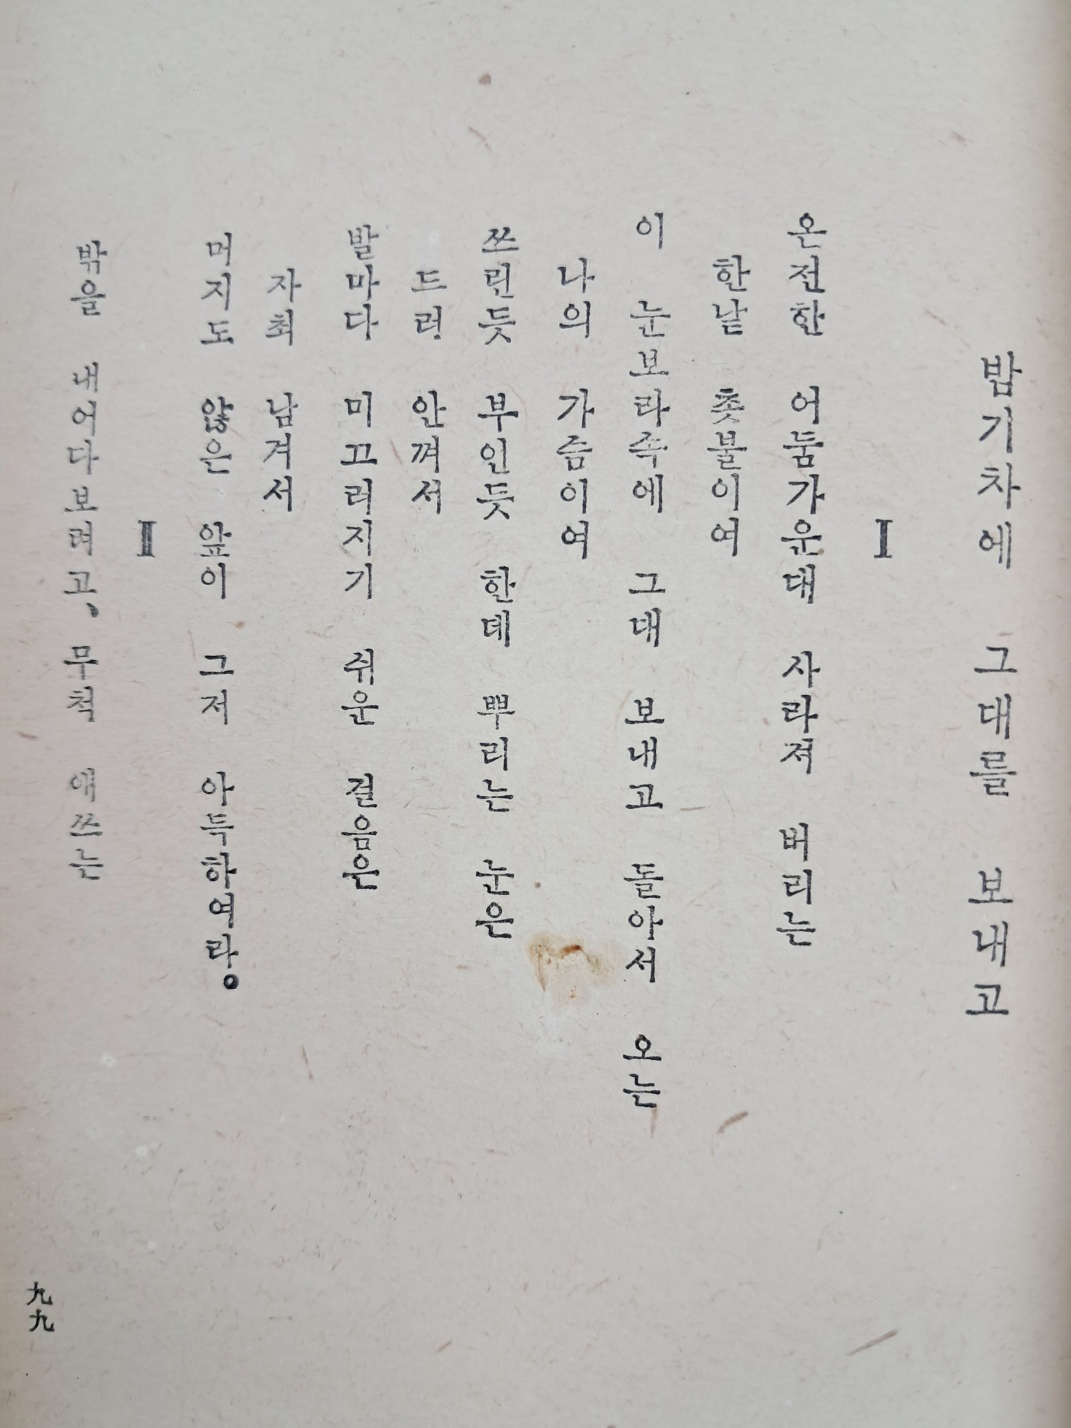 밤기차에 그대를 보내고
I
온전한 어둠가운대 사라져 버리는
한낱 촛불이여
이 눈보라속에 그대 보내고 돌아서 오는
나의 가슴이여
쓰린듯 부인듯 한데 뿌리는 눈은
드러 안껴서
발마다 미끄러지기 쉬운 걸음은
자최 남겨서
머지도 않은 앞이 그저 아득하여라。
II
밖을 내어다보려고、무척 애쓰는
九九